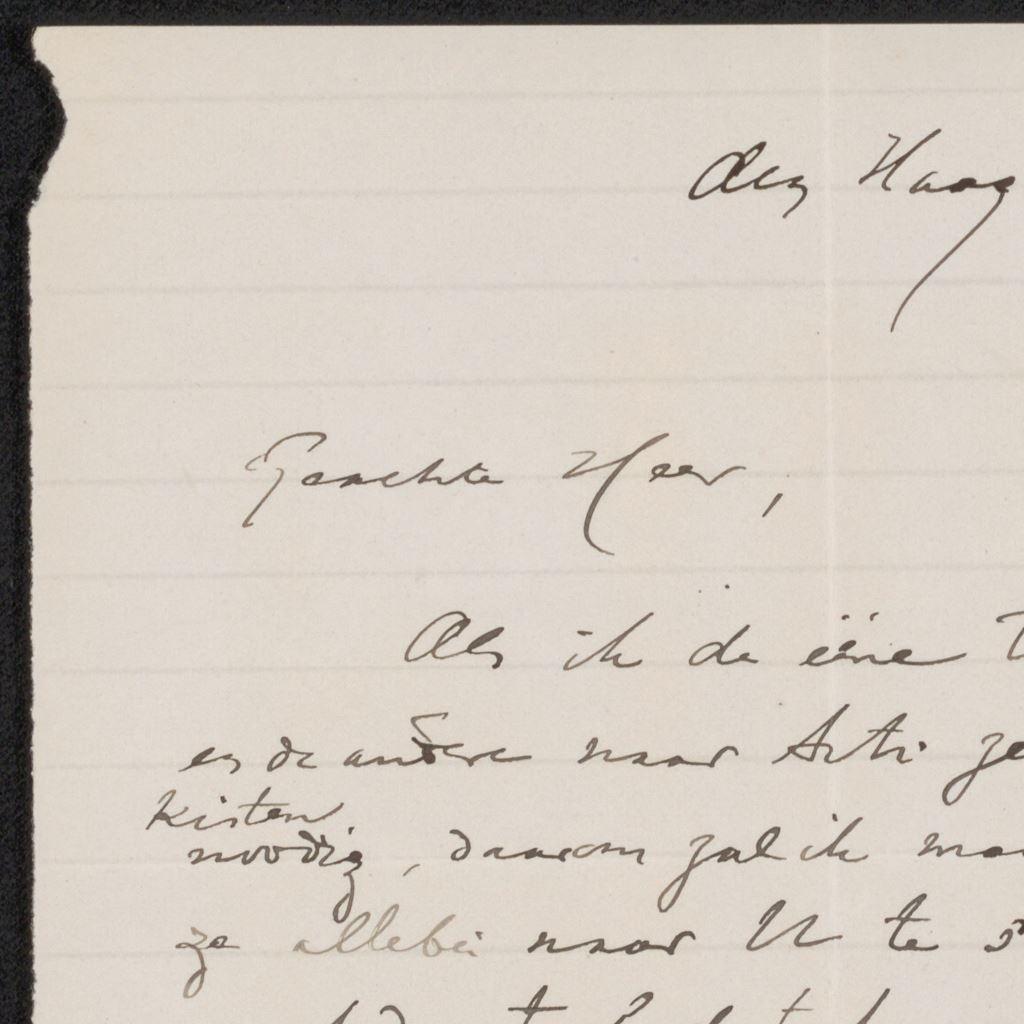 den Haag
Geachte Heer,
Als ik de eëne
en de andere naar Arti
kisten
noodig, daarom zal ik
ze allebei naar U te